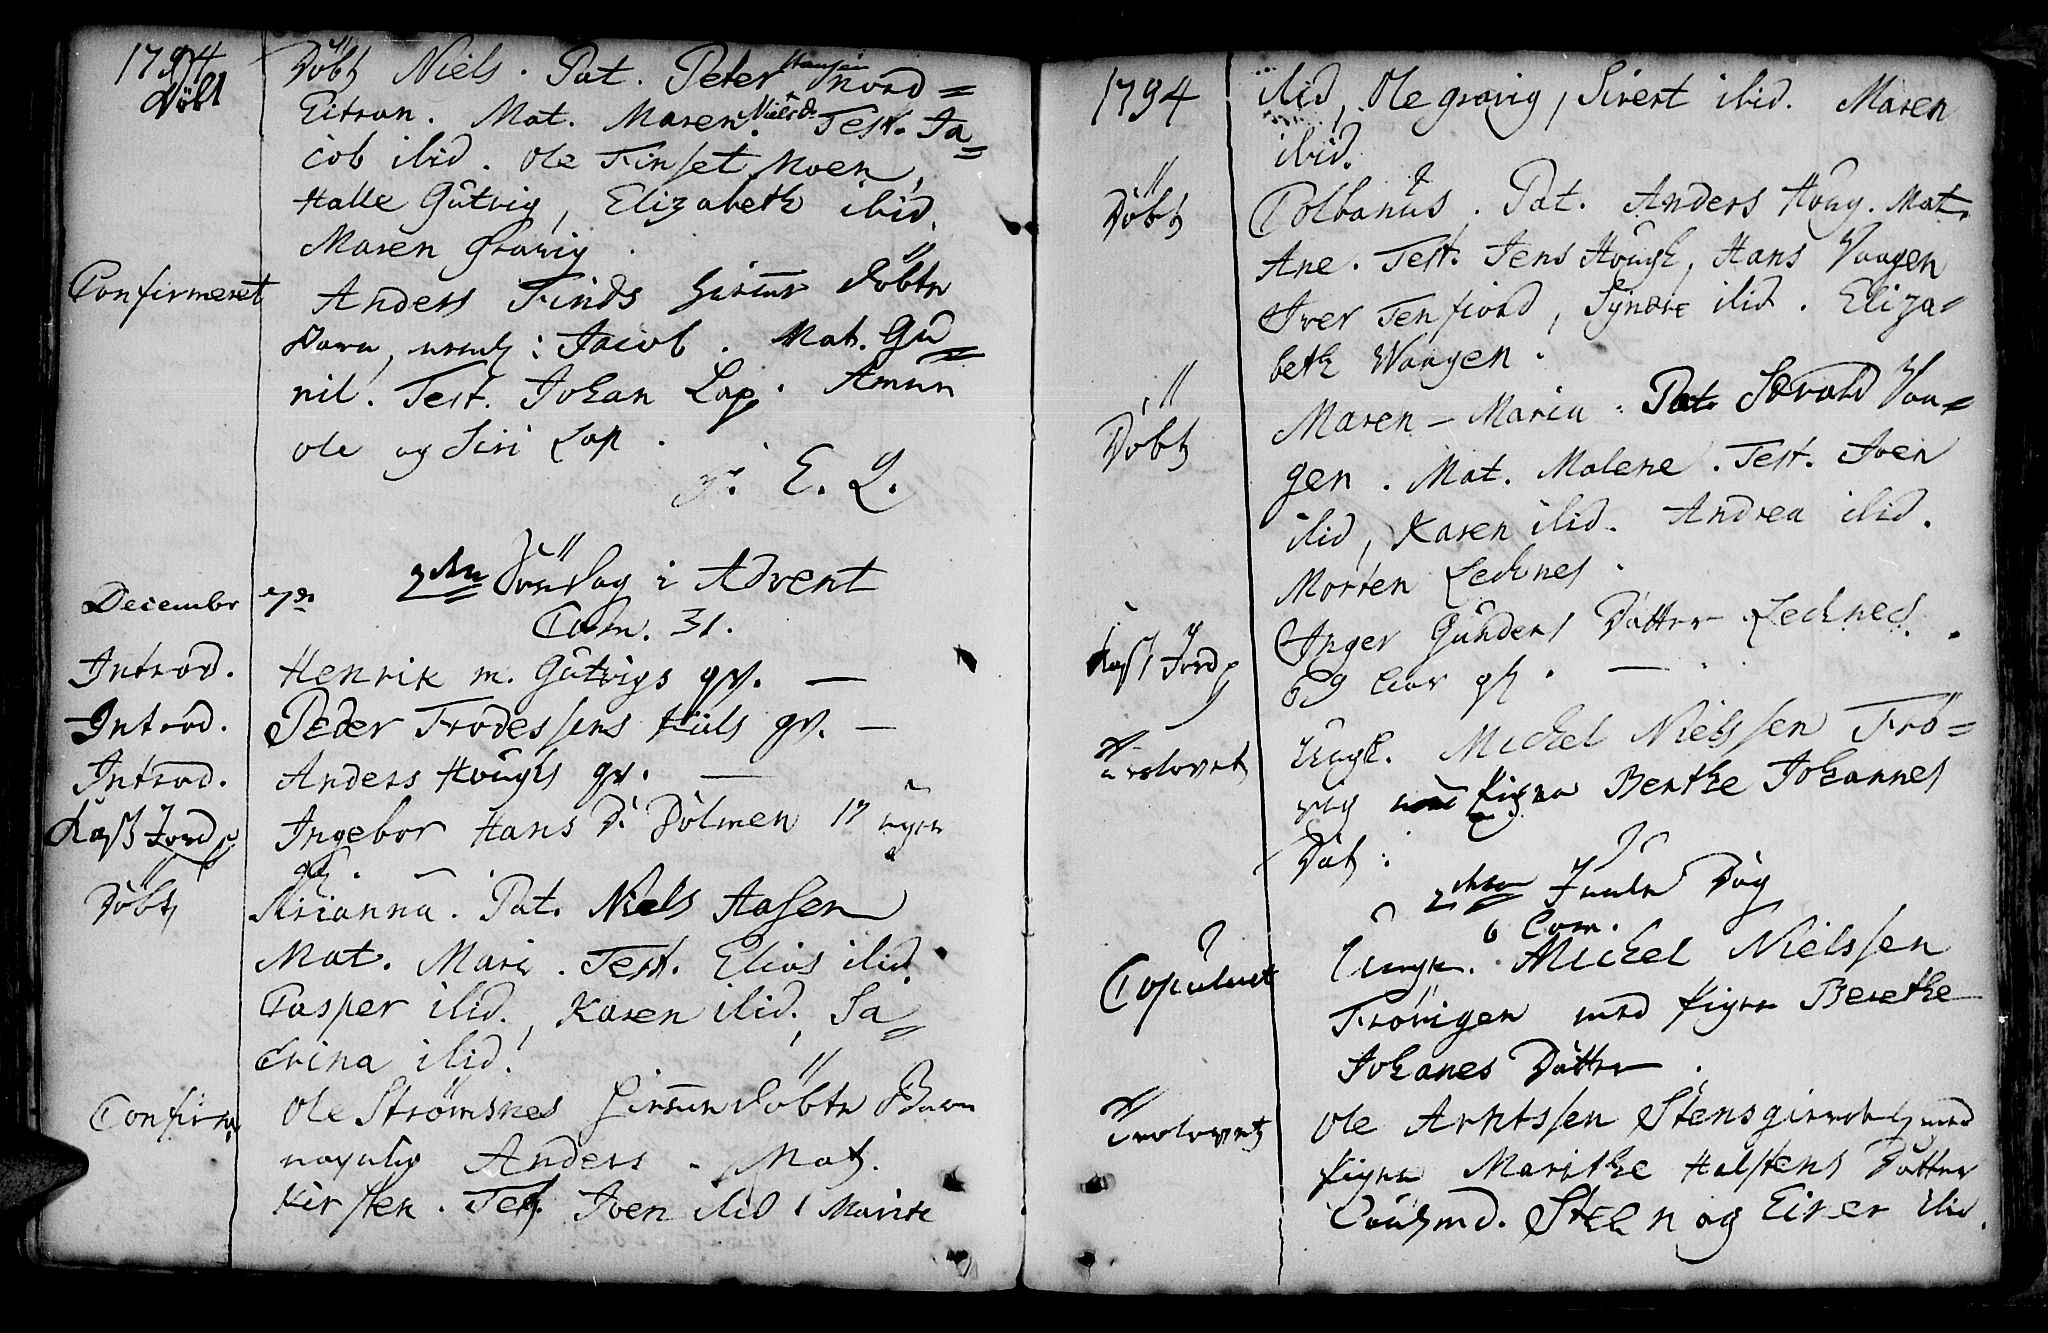 1794
Döbt Döbt Niels. Pat. Peter Hansen Nord=
Eitran. Mat. Maren Nielsd. Test. Ja=
cob ibid. Ole Finset Moen,
Halle Gutvig, Elizabeth ibid.
Maren Gravig.
Confirmeret Anders Finds hiemme døbte
Barn, : Jacob. Mat. Gu=
nil. Test. Johan Lap. Amun
Ole og Siri Lap.
E. L.
Decembr 7de 2den Søndag i Advent
Com. 31.
Introd. Henrik m. Gutvigs qv. —
Introd. Peder Frodessens qv. —
Introd. Anders Hougs qv. —
Kast Jord p Ingebor Hans D. Dolmen 17 uger
gl.
Döbt Arianna. Pat. Niels Aasen
Mat. Mari. Test. Elias ibid.
Casper ibid., Karen ibid., Ca=
trina ibid.
Confirm. Ole Strømsnes hiemme døbte Barn
navnlig Anders. Mat.
Kirsten. Test. Joen ibid, Marite
1794
ibid, Ole Gravig, Sivert ibid. Maren
ibid.
Döbt Colbanus. Pat. Anders Houg. Mat.
Ane. Test. Jens Hough, Hans Vaagen
Iver Tenfiord, Synøre ibid. Eliza=
beth Waagen.
Döbt Maren-Maria. Pat. Vaa=
gen. Mat. Malene. Test. Joen
ibid, Karen ibid. Andrea ibid.
Morten Lecknes.
Kast Jord p Inger Gunders Datter Lecknes.
69 Aar gl. —
Trolovet Ungk. Michel Nielssen Frö=
vig Pigen Berthe Johannes
Dat:
2den Juule Dag
6 Com.
Copuleret Ungk. Michel Nielssen
Frövigen med Pigen Berethe
Johanes Datter.
Trolovet Ole Arntssen med
Pigen Marithe Halstens Datter
Caut. md. Steen og Einer ibid.